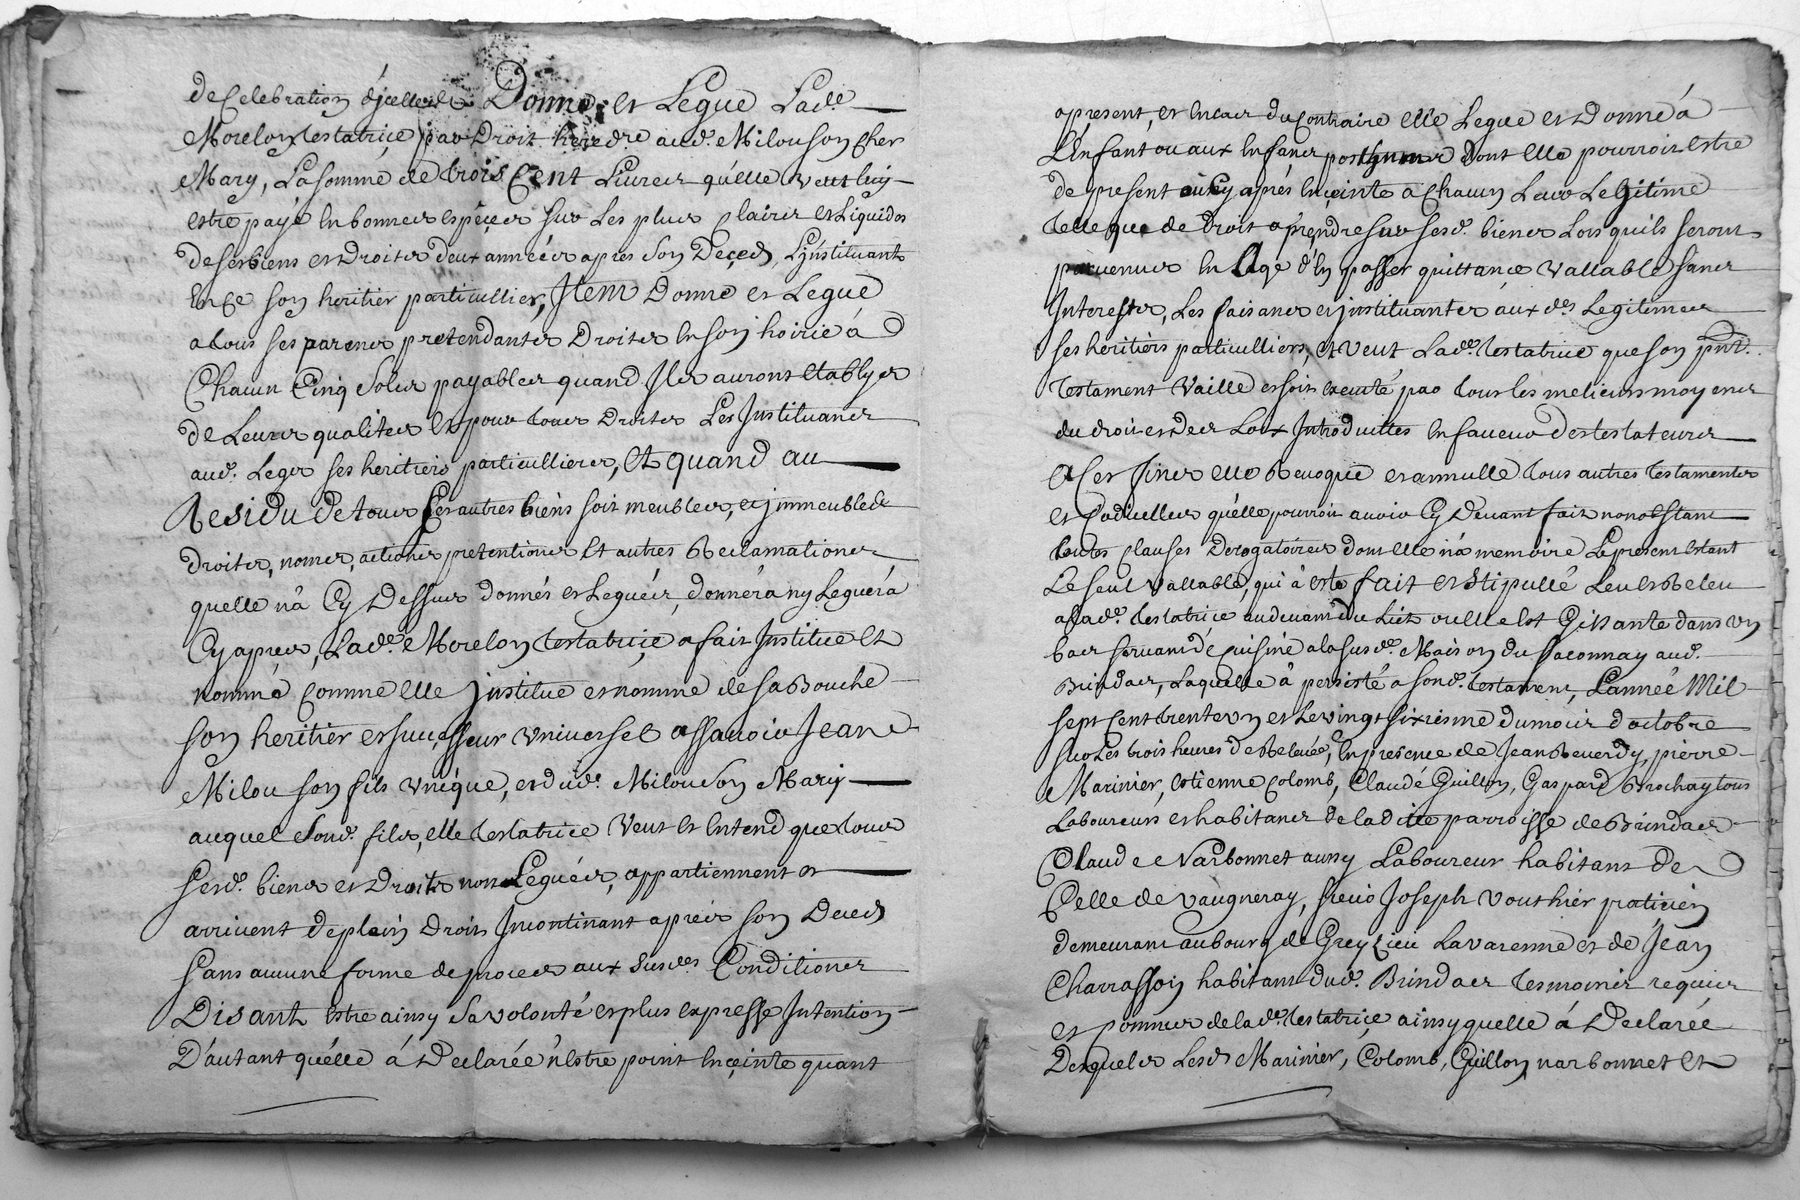 de Celebration d'jcelle Donne et Legue Lade
Morelon testatrice par Droit heredre aud. Milou son cher
Mary, La somme de trois Cent Livres qu'elle veut luy
estre payé en bonnes espèces sur Les plus clairs et Liquides
de ses biens et Droits deux années apres son Deçed, L'jnstituant
en ce son heritier particullier, Item Donne et Legue
a tous ses parens pretendants Droits en son hoirie á
Chacun Cinq sols payables quand Ils auront etablys
de Leurs qualites et pour tous Droits Les Instituans
aud. Legs ses heritiers particulliers, Et quand au
Residu de tous ses autres biens soit meubles, et jmmeubles
droits, noms, actions pretentions et autres Reclamations
quelle n'á Cy Dessus donnés et Legués, donnera ny Leguera
Cy apres, Lade Morelon testatrice a fait Institué et
nommé comme elle jnstitue et nomme de sa Bouche
son heritier et successeur vniversel assavoir Jean
Milou son fils vnique, et dud. Milou son Mary
auquel Soud. fils, elle testatrice Veut et Entend que tous
sesd. biens et Droits non Legués, appartiennent et
arrivent de plein Droit Incontinant aprés son Deced
sans aucune forme de proces aux susdes Conditions
Disant estre ainsy sa volonté et plus expresse Intention
D'autant qu'elle á Declarée n'estre point Enceinte quant
apresent, et en cas du Contraire elle Legue et Donne á
L'Enfant ou aux Enfans posthumes dont elle pourroit estre
de present ou Cy aprés Enceinte a Chacun Leur Legitime
telle que de Droit a prendre sur sesd. biens Lors quils seront
parvenus en Age d'en passer quittance vallable sans
Interests, Les faisans et jnstituants aux des Legitimes
ses heritiers particulliers, Et veut Lade testatrice que son pnt.
Testament Vaille et soit executé par tous les melieurs moyens
du droit et des Loix Introduittes en faveur des testateurs
A ces fins elle Revoque et annulle tous autres testaments
et Codicelles qu'elle pourroit avoir Cy Devant fait nonobstant
toutes Clauses Derogatoires dont elle n'a memoire Le present estant
Le seul vallable, qui á esté fait et stipullé Leu et Releu
a Lade testatrice au devant du Lict ou elle est Gissante dans vn
bas servant de Cuisine a la susde Maison du Faconnay aud.
Brindas, Laquelle á persisté a sond. testament, L'année Mil
sept Cent trente vn et Le vingt sixiesme du mois d'octobre
sur Les trois heures de Relevée, En presence de Jean Reverdy, pierre
Marinier, estienne Colomb, Claude Guillon, Gaspard Brochay tous
Laboureurs et habitans de la ditte parroisse de Brindas
Claude Narbonnet aussy Laboureur habitant de
Celle de vaugneray, sieur Joseph vouthier praticien
demeurant au bourg de Greyzieu Lavarenne et de Jean
Charrasson habitant dud. Brindas tesmoins requis
et Connus de lade testatrice ainsy quelle á Declarée
Desquels Lesd Marinier, Colomb, Guillon narbonnet et